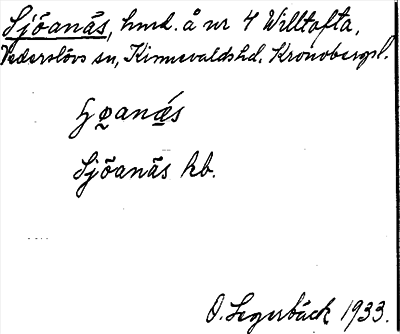 Sjöanäs, hmd. å nr 4 Willtofta,
Vederslövs sn, Kinnevaldshd. Kronobergsl.
Sjöanäs kb.
O. Segerbäck 1933.